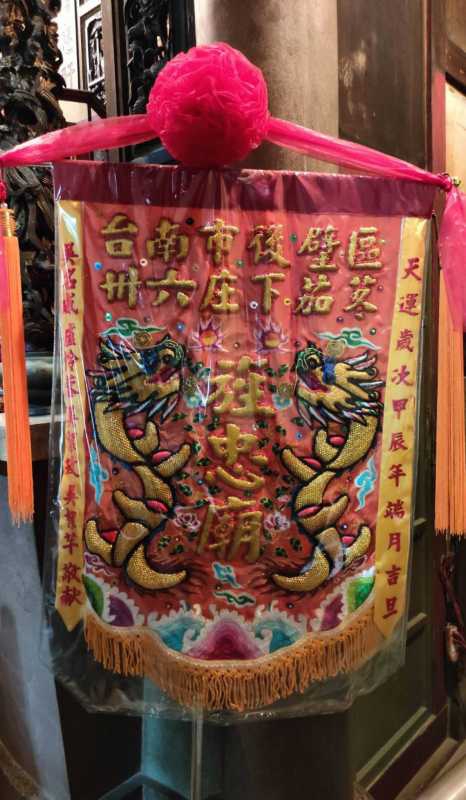 台南市後壁區
卅六庄下茄苳
旌忠廟
天運歲次甲辰年端月吉旦
敬獻